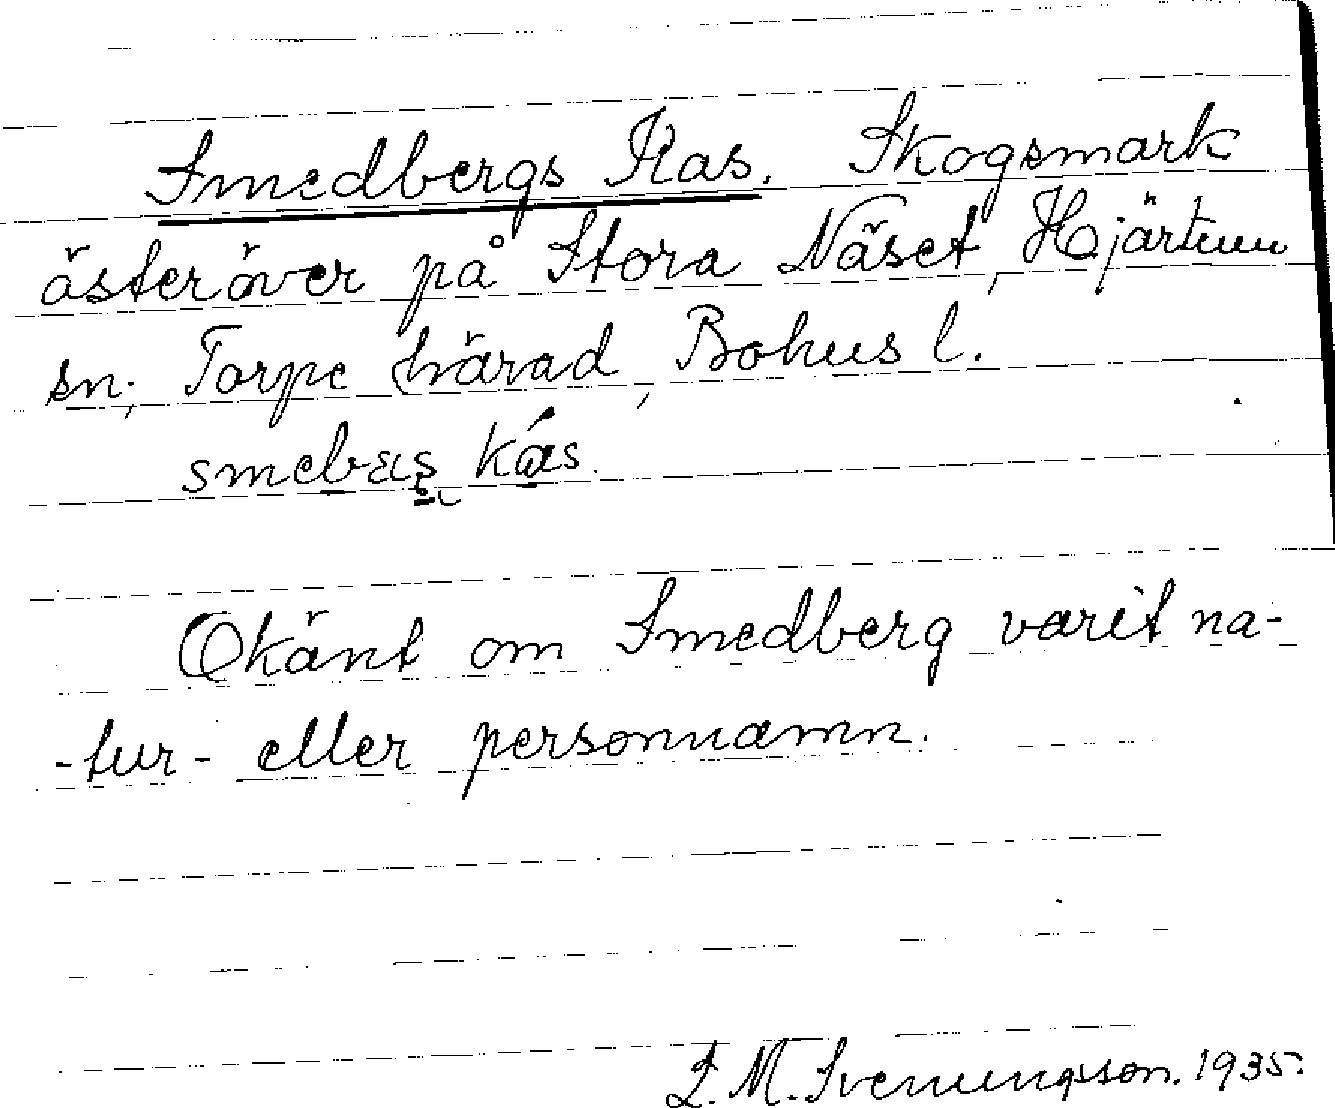 Smedbergs Kas. Skogsmark
österöver på Stora Näset, Hjärtum
sn; Torpe härad, Bohus l.
smebæs kás.
Okänt om Smedberg varit na-
-tur- eller personnamn.
L. M. Svenungsson. 1935.